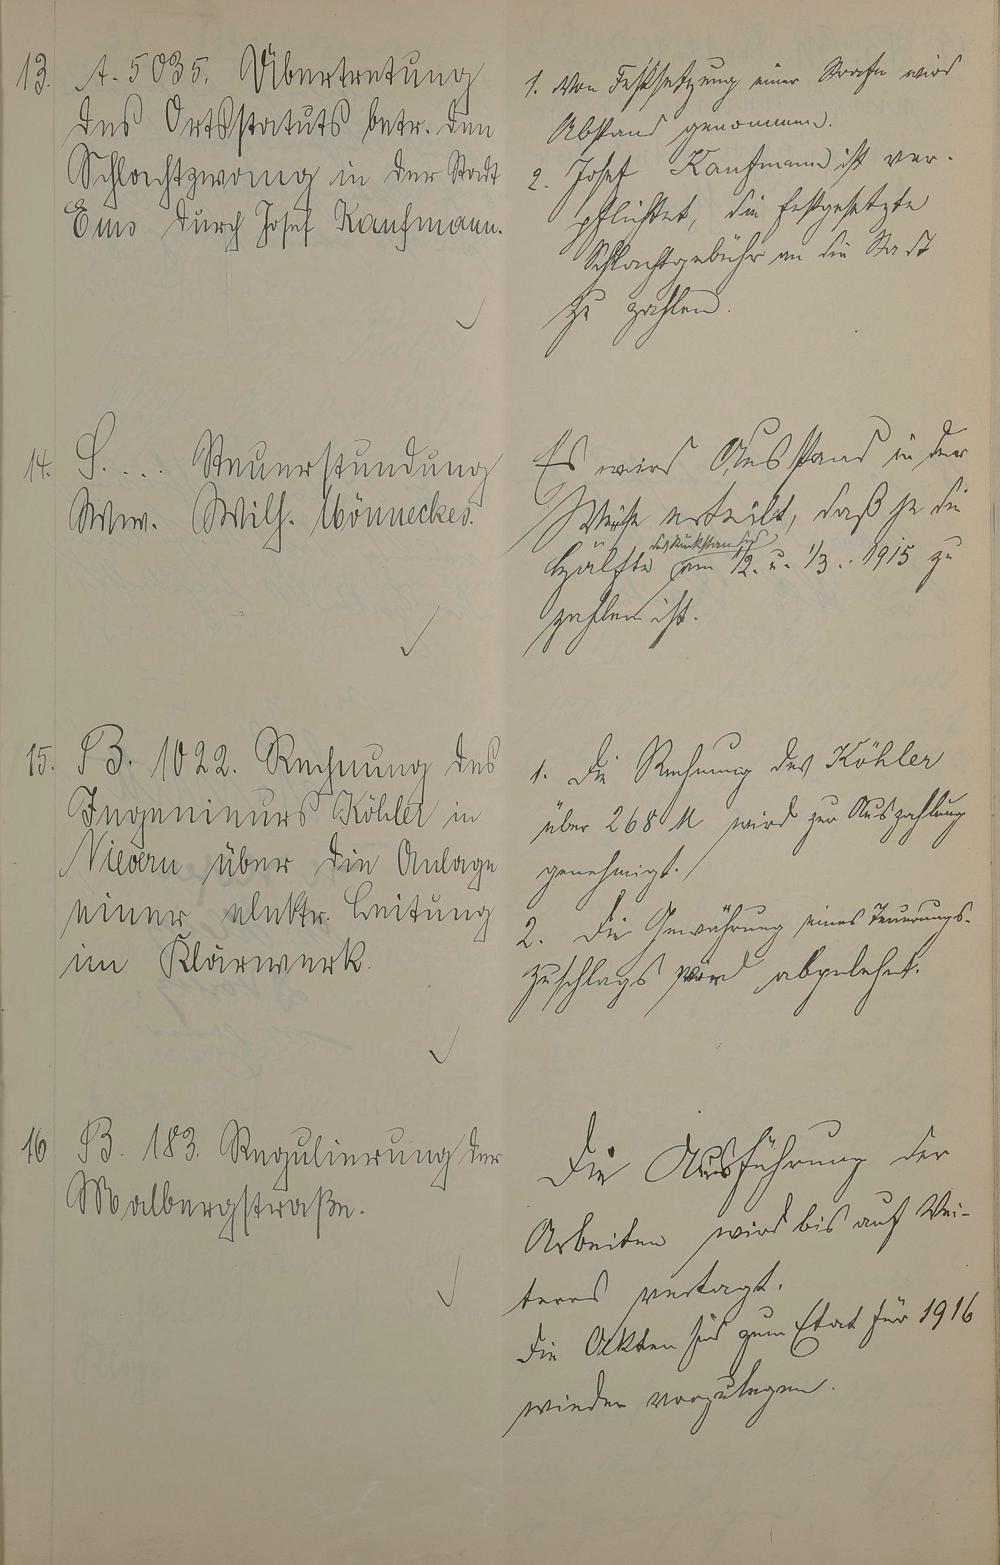 13. A. 5035. Übertretung
des Ortsstatuts betr. den
Schlachtzwang in der Stadt
Ems durch Josef Kaufmann.
1. Von Festsetzung einer Strafe wird
Abstand genommen.
2. Josef Kaufmann ist ver-
pflichtet, die festgesetzte
Schlachtgebühr an die Stadt
zu zahlen.
14. S.... Steuerstundung
Ww. Wilh. Mönneckes.
Es wird Ausstand in der
Weise erteilt, daß je die
Hälfte des Rückstandes am 1/2. u. 1/3. 1915 zu
zahlen ist.
15. B. 1022. Rechnung des
Ingenieurs Köhler in
Nievern über die Anlage
einer elektr. Leitung
im Klärwerk.
1. Die Rechnung des Köhler
über 268 M wird zur Auszahlung
genehmigt.
2. Die Gewährung eines Teuerungs-
zuschlags wird abgelehnt.
16 B. 183. Regulierung der
Malbergstraße.
Die Ausführung der
Arbeiten wird bis auf Wei-
teres vertagt.
Die Akten sind zum Etat für 1916
wieder vorzulegen.